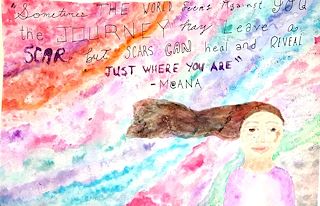 "Sometimes THE WORLD seems Against YOU
the JOURNEY may Leave a
SCAR but SCARS CAN heal and REVEAL
JUST WHERE YOU ARE"
-MOANA